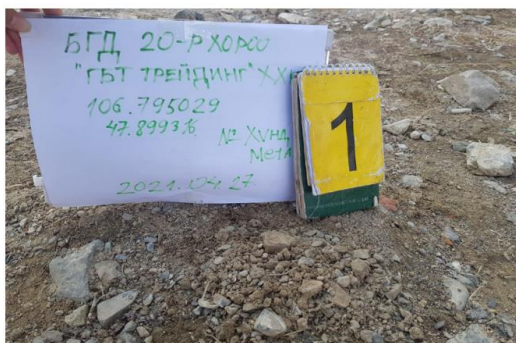 БГД 20-Р ХОРОО
"ГБТ ТРЕЙДИНГ" ХХК
106.795029
47.899316
№ ХУНД
2021.04.27
1